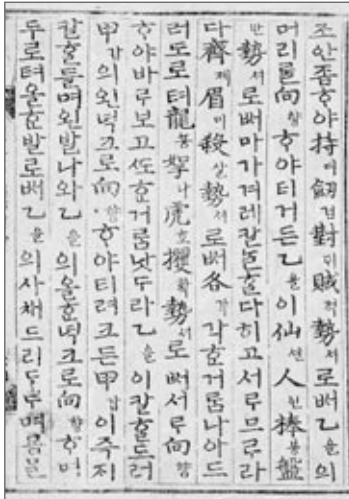 조안좀ᄒᆞ야持디劔검對ᄃᆡ賊적勢셔로ᄡᅥ乙을의
머리ᄅᆞᆯ向향ᄒᆞ야티거든乙을이仙션人인捧봉盤
반勢셔로ᄡᅥ마가겨레칼흘다히고서루므르라
다齊졔眉미殺살勢셔로ᄡᅥ各각각ᄒᆞᆫ거룸나아드
러도로텨龍룡拏나虎호攫확勢셔로ᄡᅥ서루向향
ᄒᆞ야바루보고ᄯᅩᄒᆞᆫ거룸낫ᄃᆞ라乙을이칼흘드러
甲갑의왼녁크로向향ᄒᆞ야티려크든甲갑이즉지
칼흘들며왼발나와乙을의올흔녁크로向향ᄒᆞ며
두로텨올흔발로ᄡᅥ乙을의사채드리ᄃᆞ루며